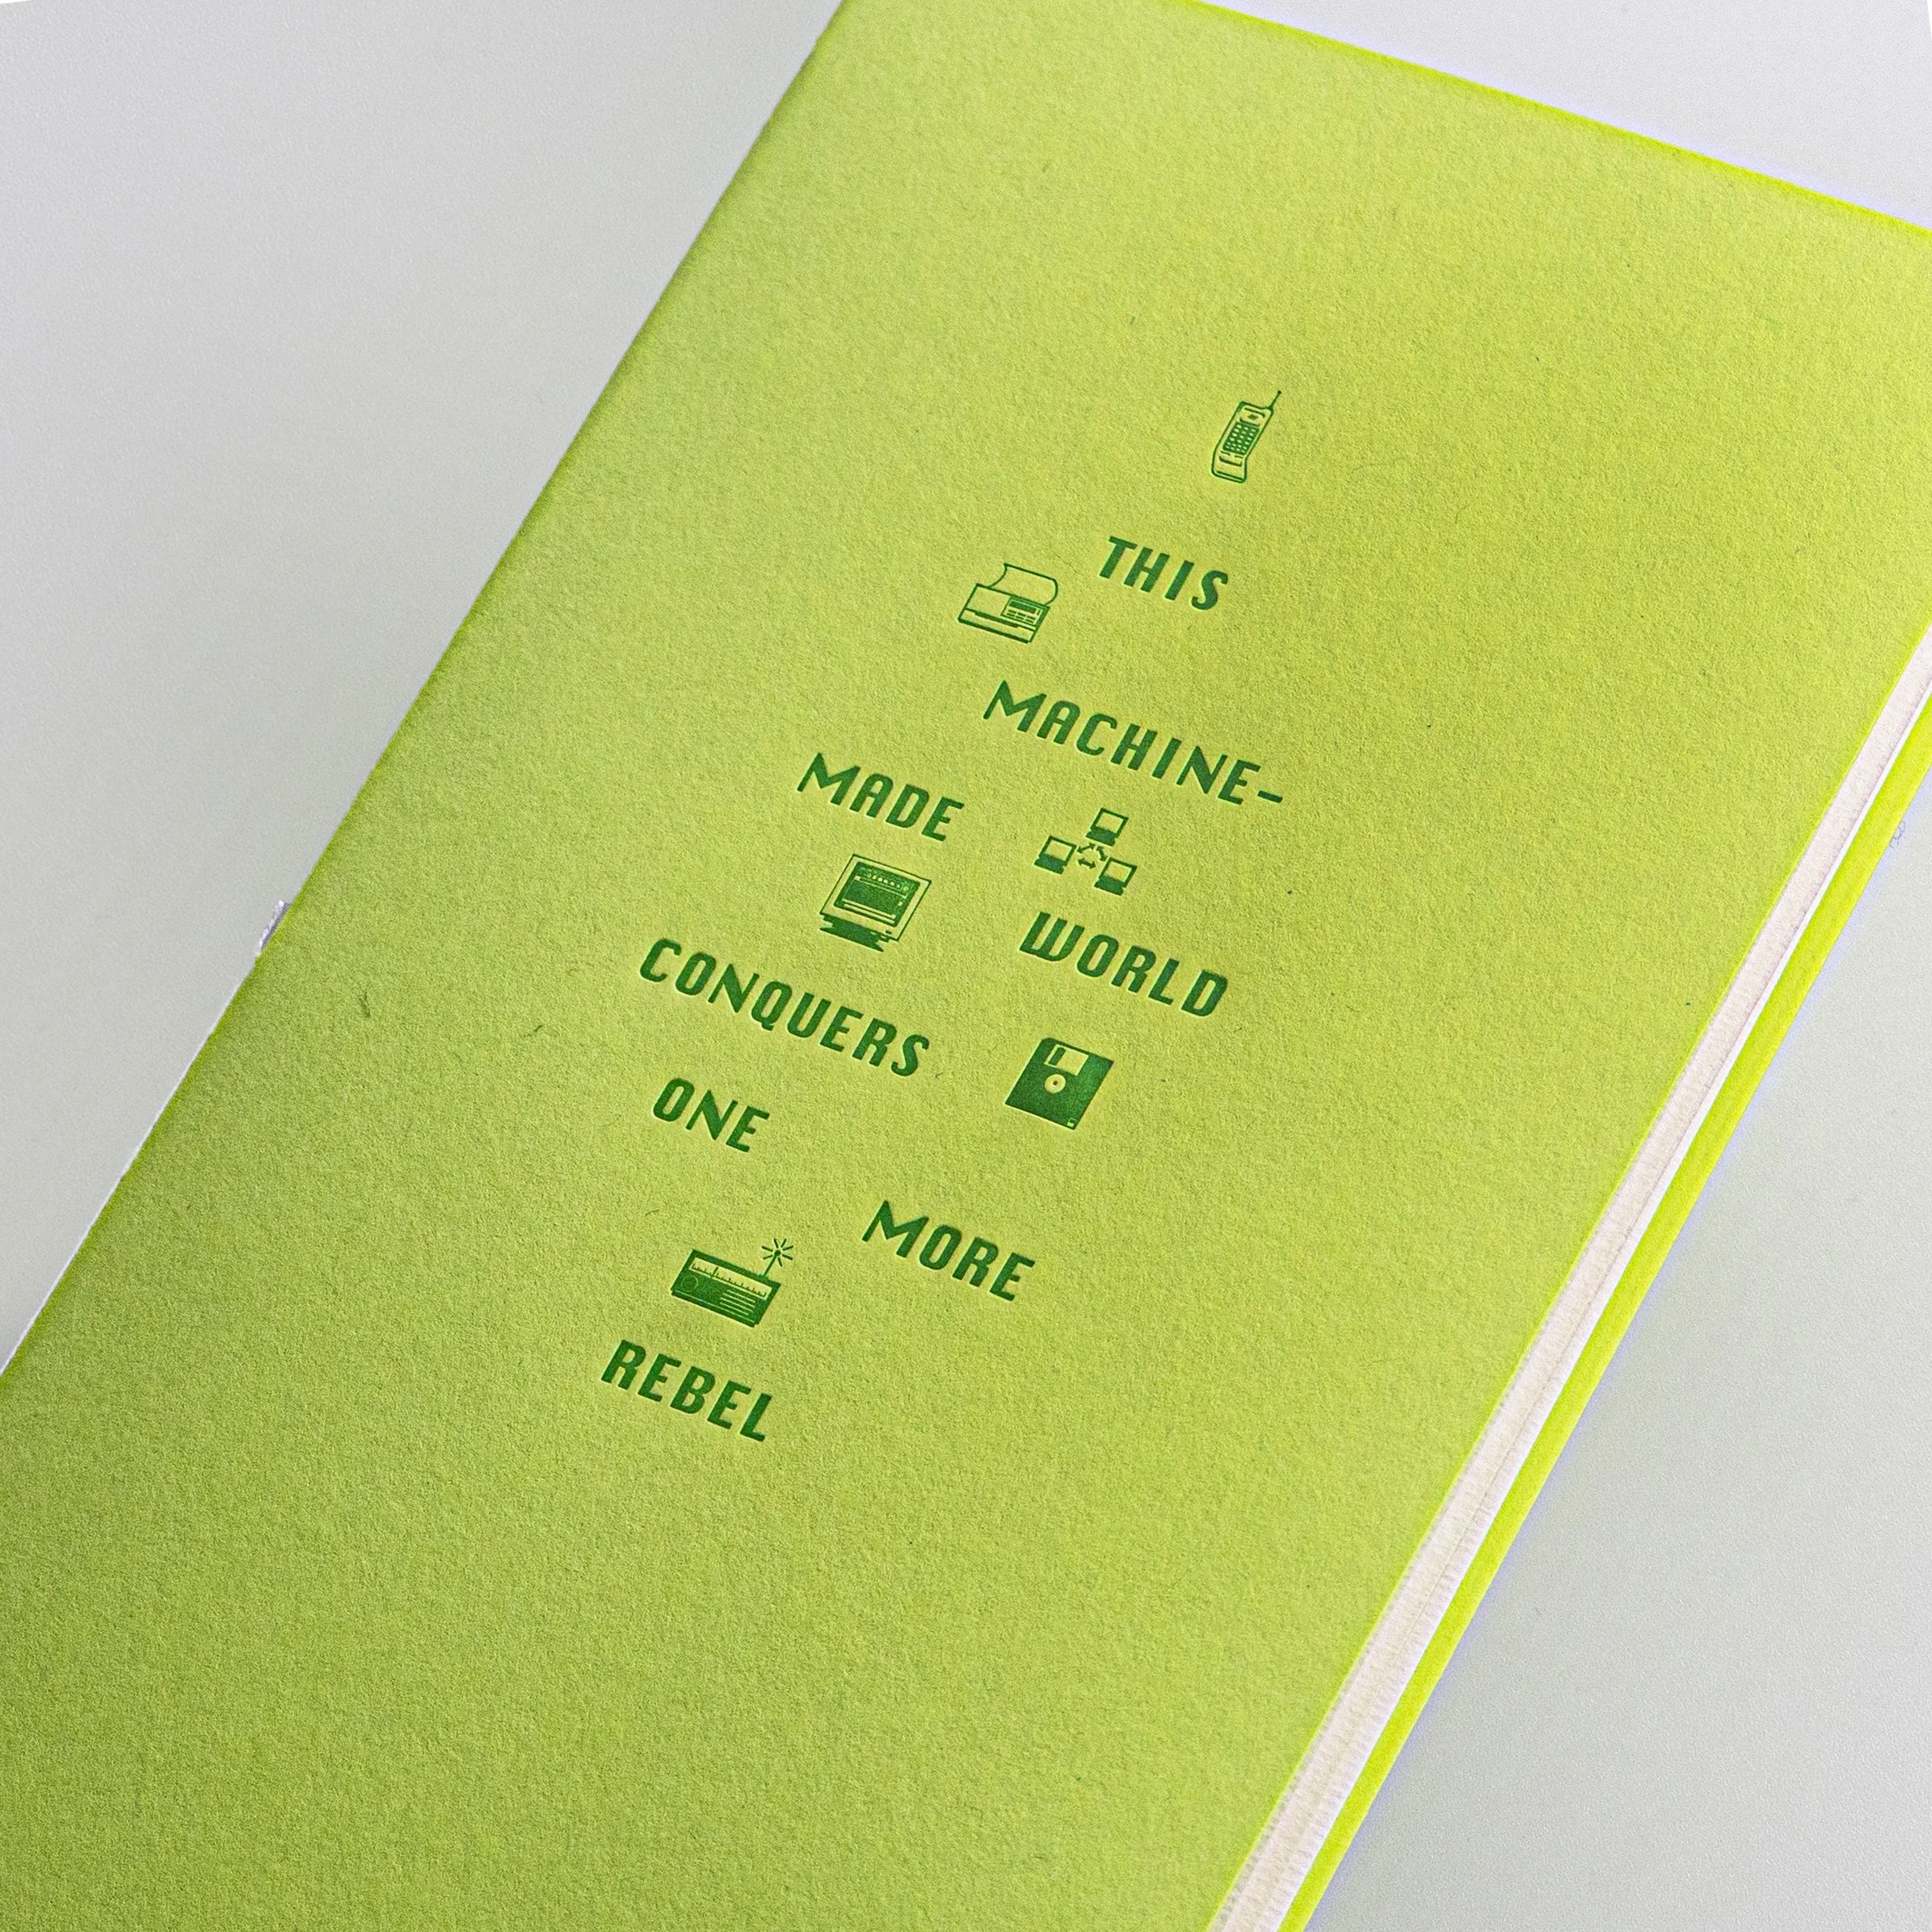 THIS
MACHINE-
MADE
WORLD
CONQUERS
ONE
MORE
REBEL